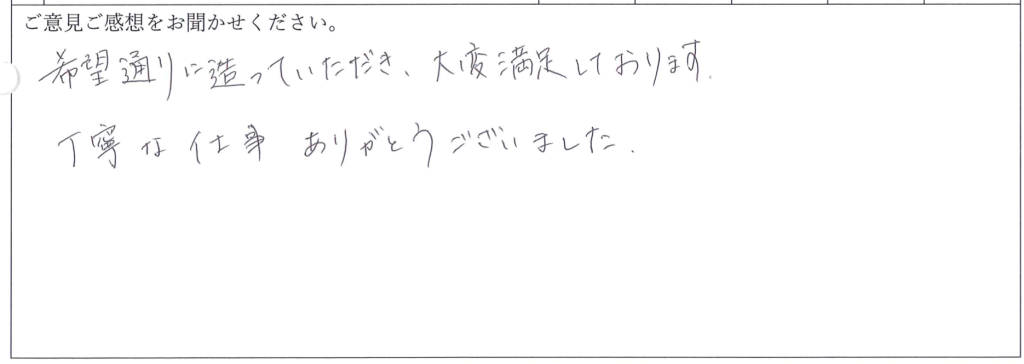 ご意見ご感想をお聞かせください。
希望通りに造っていただき、大変満足しております.
丁寧な仕事 ありがとうございました.